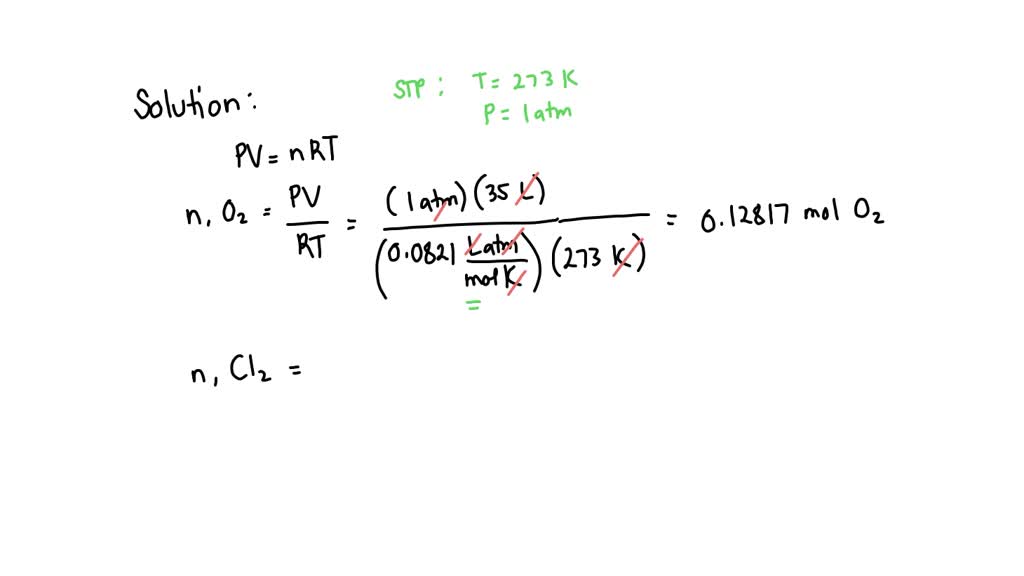 Solution:
STP: T = 273 K
P = 1 atm
PV = nRT
n, O₂ = PV / RT = (1 atm)(35 L) / (0.0821 L atm / mol K)(273 K) = 0.12817 mol O₂
=
n, Cl₂ =